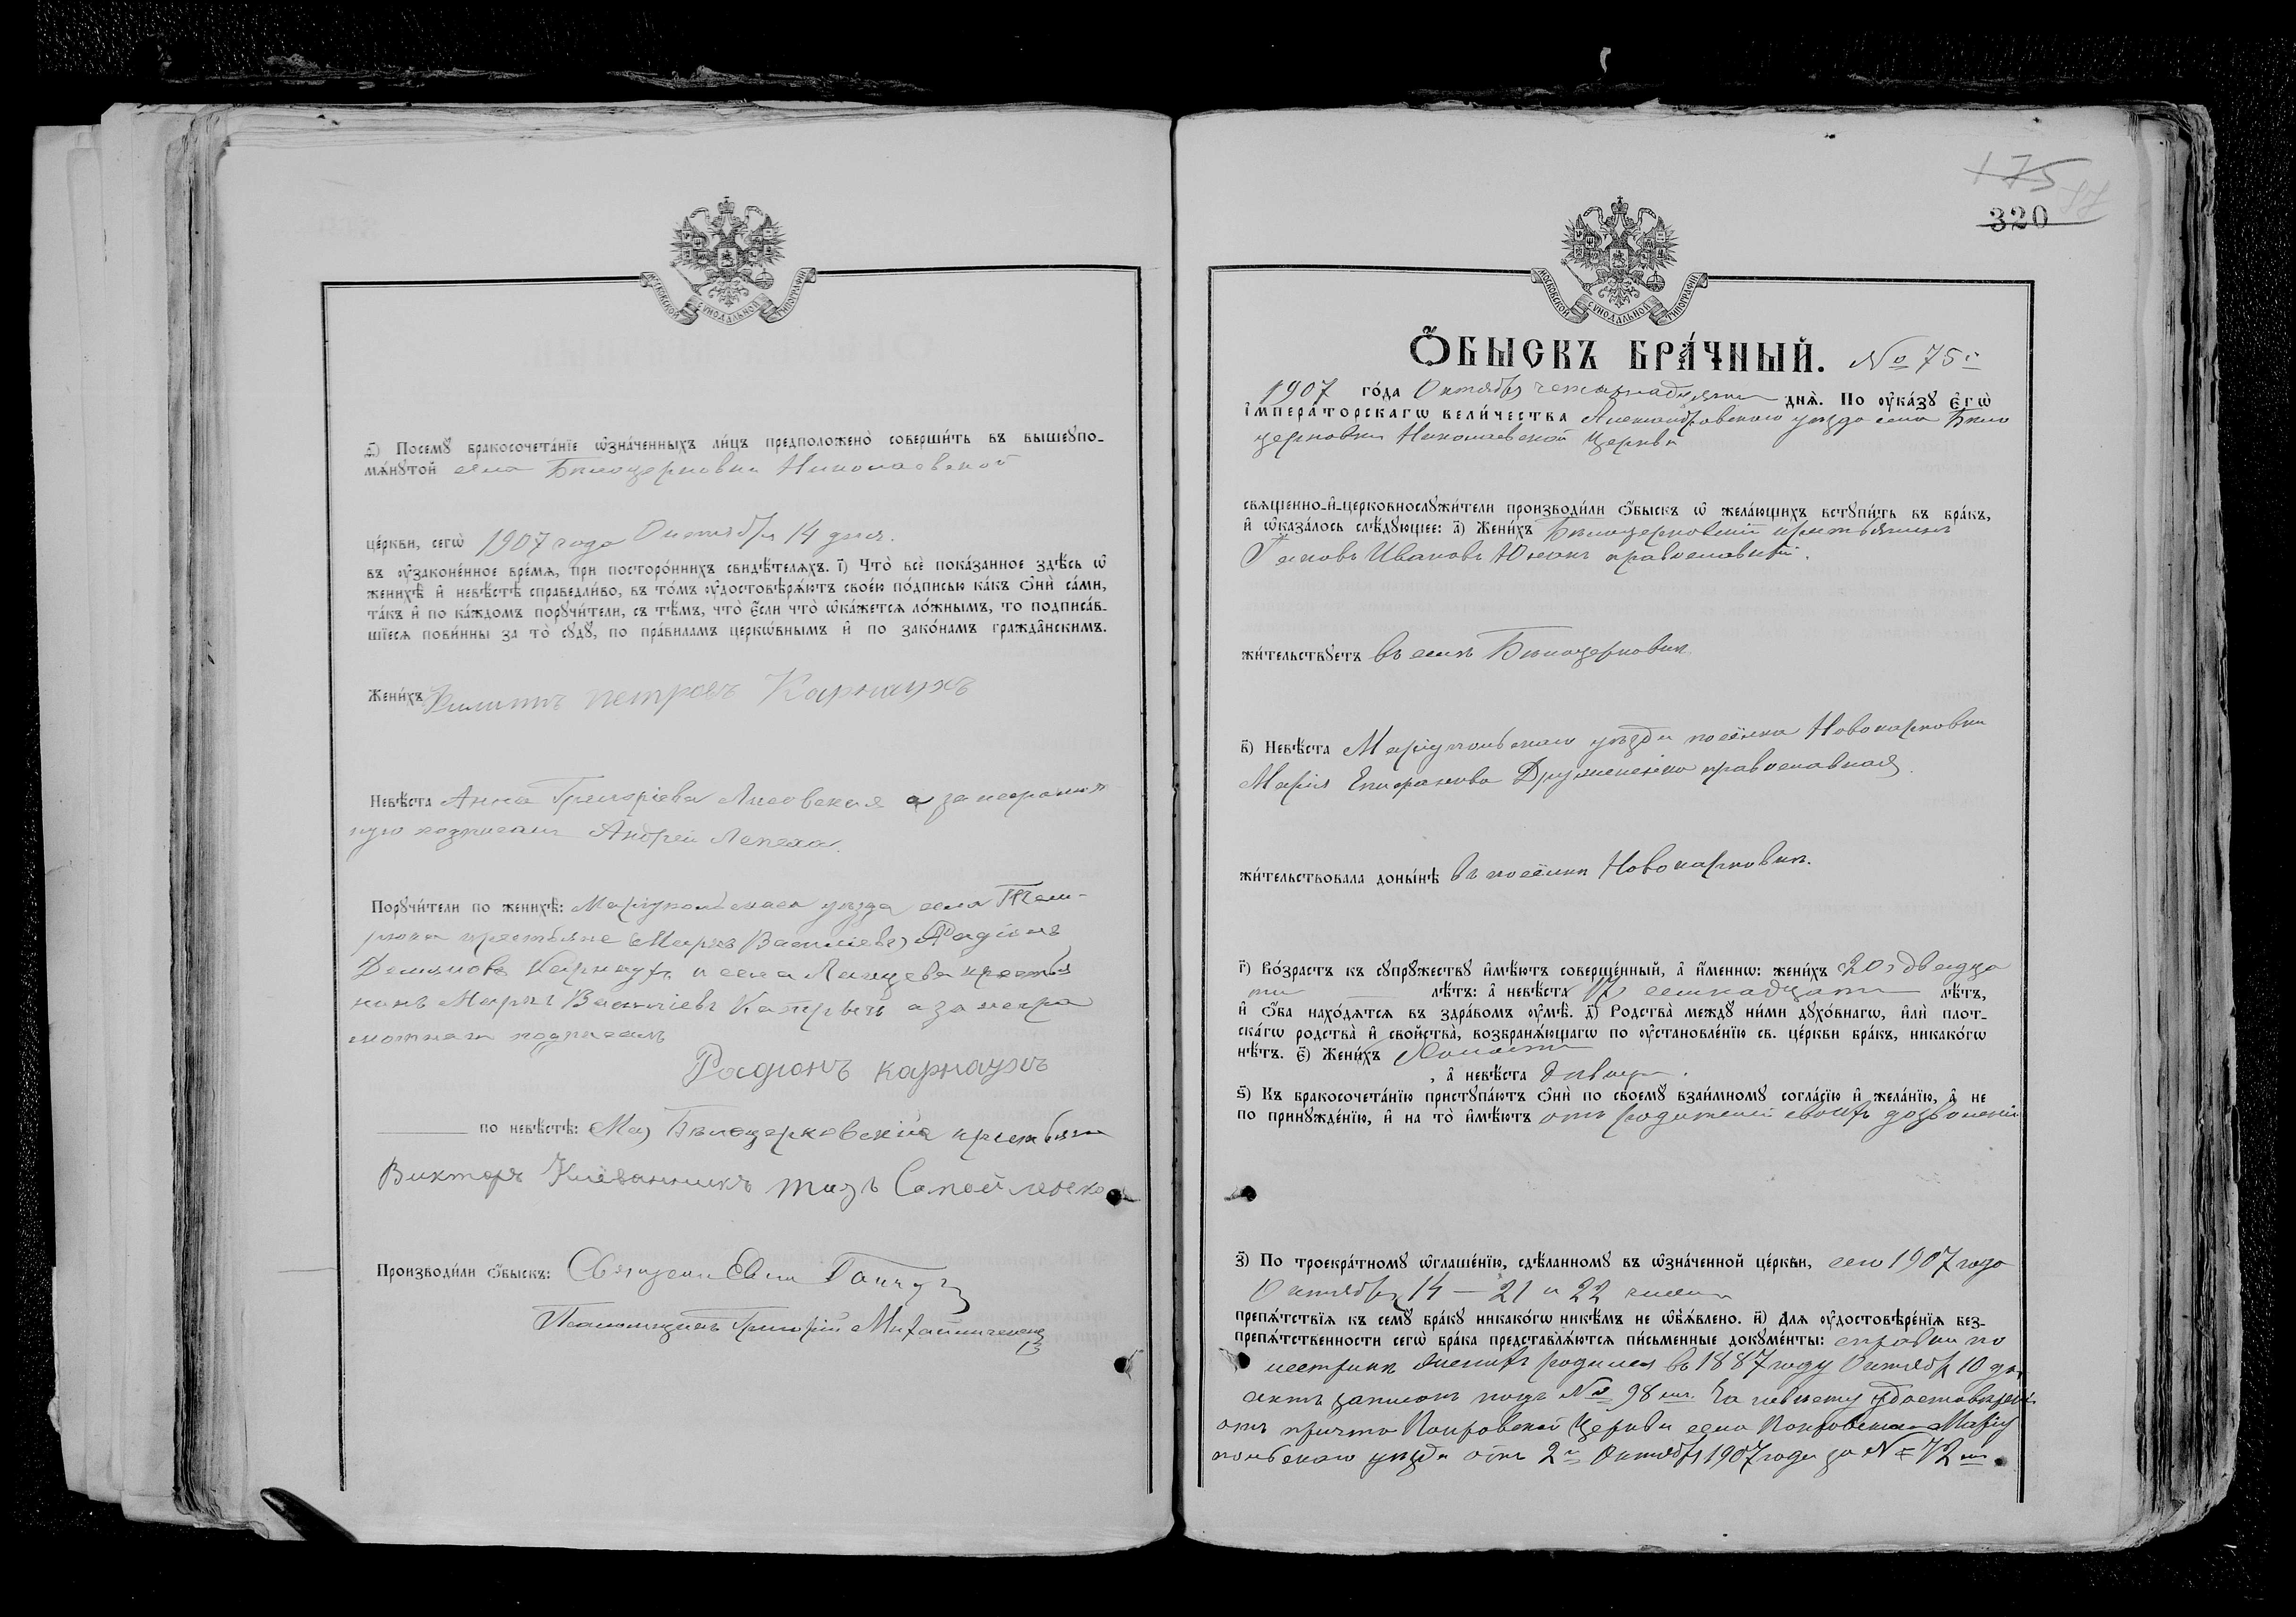 МОСКОВСКОЙ СѴНОДАЛЬНОЙ ТИПОГРАФІИ
ѳ҃) Посемꙋ бракосочета́нїе ѡ҆зна́ченныхъ ли́цъ предположено̀ соверши́ть въ вышеꙋпо-
мѧ́нꙋтой села Бѣлоцерковки Николаевской
це́ркви, сегѡ̀ 1907 года Октября 14 дня.
въ ᲂу҆зако́ненное вре́мѧ, при посторо́ннихъ свидѣ́телѧхъ. і҃) Что̀ всѐ пока́занное здѣ́сь ѡ҆
женихѣ̀ и҆ невѣ́стѣ справедли́во, въ то́мъ ᲂу҆достовѣрѧ́ютъ свое́ю по́дписью ка́къ ѻ҆нѝ са́ми,
та́къ и҆ по ка́ждомъ порꙋчи́тели, съ тѣ́мъ, что̀ є҆́сли что̀ ѡ҆ка́жетсѧ ло́жнымъ, то подписа́в-
шїесѧ пови́нны за то̀ сꙋдꙋ̀, по пра́виламъ церкѡ́внымъ и҆ по зако́намъ гражда́нскимъ.
Жени́хъ Филиппъ Петровъ Карнаухъ
Невѣ́ста Анна Григоріева Лисовская а за неграмот
ную росписался Андрей Лепеха.
Порꙋчи́тели по женихѣ̀: Маріупольскаго уѣзда села Тем-
рюка крестьяне Маркъ Василіевъ, Радіонъ
Демьяновъ Карнаухъ и села крестья
нинъ Маркъ Василіевъ а за негра
мотныхъ подписалъ
Родионъ карнаухъ
по невѣ́стѣ: Бѣлоцерковскіе крестьяне
Викторъ тožъ Самойленко
Производи́ли ѻ҆́быскъ: Священникъ
Псаломщикъ Григорій Михайличенко
175
320
МОСКОВСКОЙ СѴНОДАЛЬНОЙ ТИПОГРАФІИ
Ѻ҆́БЫСКЪ БРА́ЧНЫЙ. № 75й
1907 го́да Октября четырнадцатаго днѧ̀. По ᲂу҆ка́зꙋ Є҆гѡ̀
І҆мпера́торскагѡ вели́чества Александровскаго уѣзда села Бѣло
церковки Николаевской Церкви
свѧще́нно-и҆-церковнослꙋжи́тели производи́ли ѻ҆́быскъ ѡ҆ жела́ющихъ встꙋпи́ть въ бра́къ,
и҆ ѡ҆каза́лось слѣ́дꙋющее: а҃) Жени́хъ Бѣлоцерковскій крестьянинъ
Яковъ Ивановъ Юханъ православный.
жи́тельствꙋетъ въ селѣ Бѣлоцерковкѣ
в҃) Невѣ́ста Маріупольскаго уѣзда поселка Новокарповки
Марія Епифанова Друженко православная.
жи́тельствовала доны́нѣ въ поселкѣ Новокарповкѣ.
г҃) Во́зрастъ къ сꙋпрꙋ́жествꙋ и҆мѣ́ютъ соверше́нный, а҆ и҆́меннѡ: жени́хъ 20, двадца
ти лѣ́тъ: а҆ невѣ́ста 17 семнадцати лѣ́тъ,
и҆ ѻ҆́ба нахо́дѧтсѧ въ здра́вомъ ᲂу҆мѣ̀. д҃) Родства̀ междꙋ̀ ни́ми дꙋхо́внагѡ, и҆лѝ плот-
ска́гѡ родства̀ и҆ сво́йства, возбранѧ́ющагѡ по ᲂу҆становле́нїю св. це́ркви бра́къ, никако́гѡ
нѣ́тъ. є҃) Жени́хъ холостъ
, а҆ невѣ́ста дѣвица.
ѕ҃) Къ бракосочета́нїю пристꙋпа́ютъ ѻ҆нѝ по своемꙋ̀ взаи́мномꙋ согла́сїю и҆ жела́нїю, а҆ не
по принꙋжде́нїю, и҆ на то̀ и҆мѣ́ютъ отъ родителей своихъ дозволеніе
з҃) По троекра́тномꙋ ѡ҆глаше́нїю, сдѣ́ланномꙋ въ ѡ҆зна́ченной це́ркви, сего 1907 года
Октября 14 – 21 и 22 числа
препѧ́тствїѧ къ семꙋ̀ бра́кꙋ никако́гѡ никѣ́мъ не ѡ҆б̾ѧ́влено. и҃) Длѧ ᲂу҆достовѣре́нїѧ без-
препѧ́тственности сегѡ̀ бра́ка представлѧ́ютсѧ пи́сьменные докꙋме́нты: справки по
метрикѣ женихъ родился въ 1887 году Октября 10 дня
актъ записанъ подъ № 98мъ. На невѣсту удостовѣреніе
отъ причта Покровской Церкви села Покровскаго Маріу
польскаго уѣзда отъ 2го Октября 1907 года за № 72мъ.